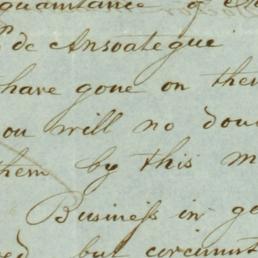 quaintance of
de Ansoategue
have gone on them
you will no dou
them by this m
Busineſs in ge
ed but circumst